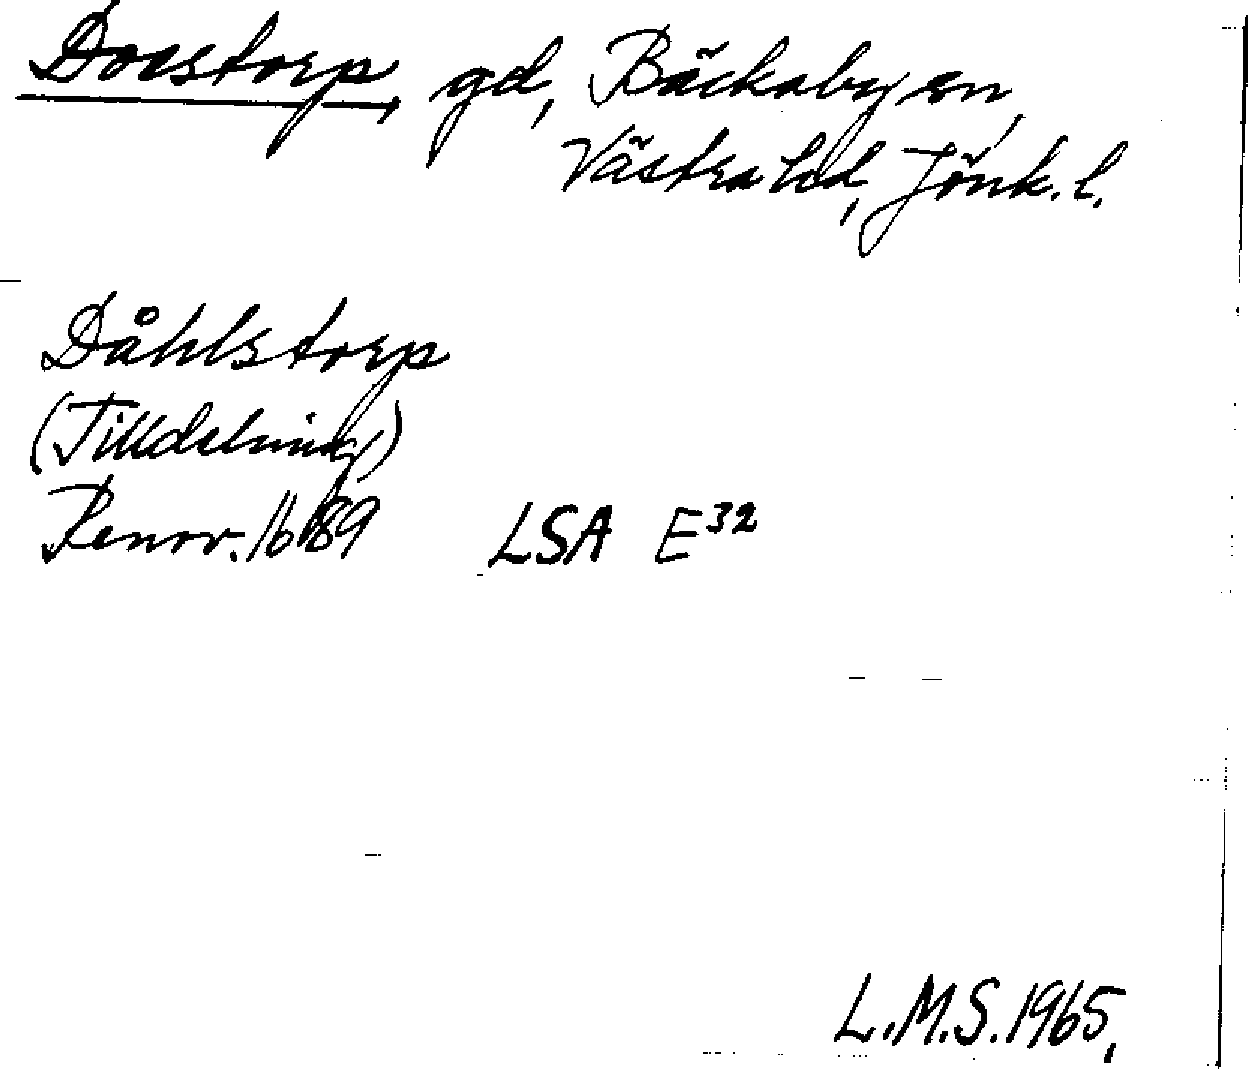 Dovstorp, gd, Bäckaby sn,
Västra hd, Jönk. l.
Dåhlstorp
(Tilldelning)
Renov. 1689 LSA E32
L.M.S. 1965.